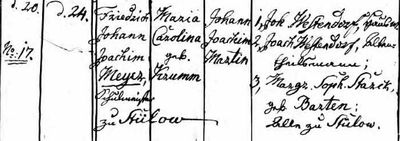 d. 20. d. 24. Friedrich Maria Johann 1, Joh. Westendorf,
Johann Carolina Joachim 2, Joach. Westendorf,
No. 17. Joachim geb. Martin
Meyer, Krumm 3, Margr. Soph. Starck,
Schulmeister geb. Barten;
zu Stülow. alle zu Stülow.